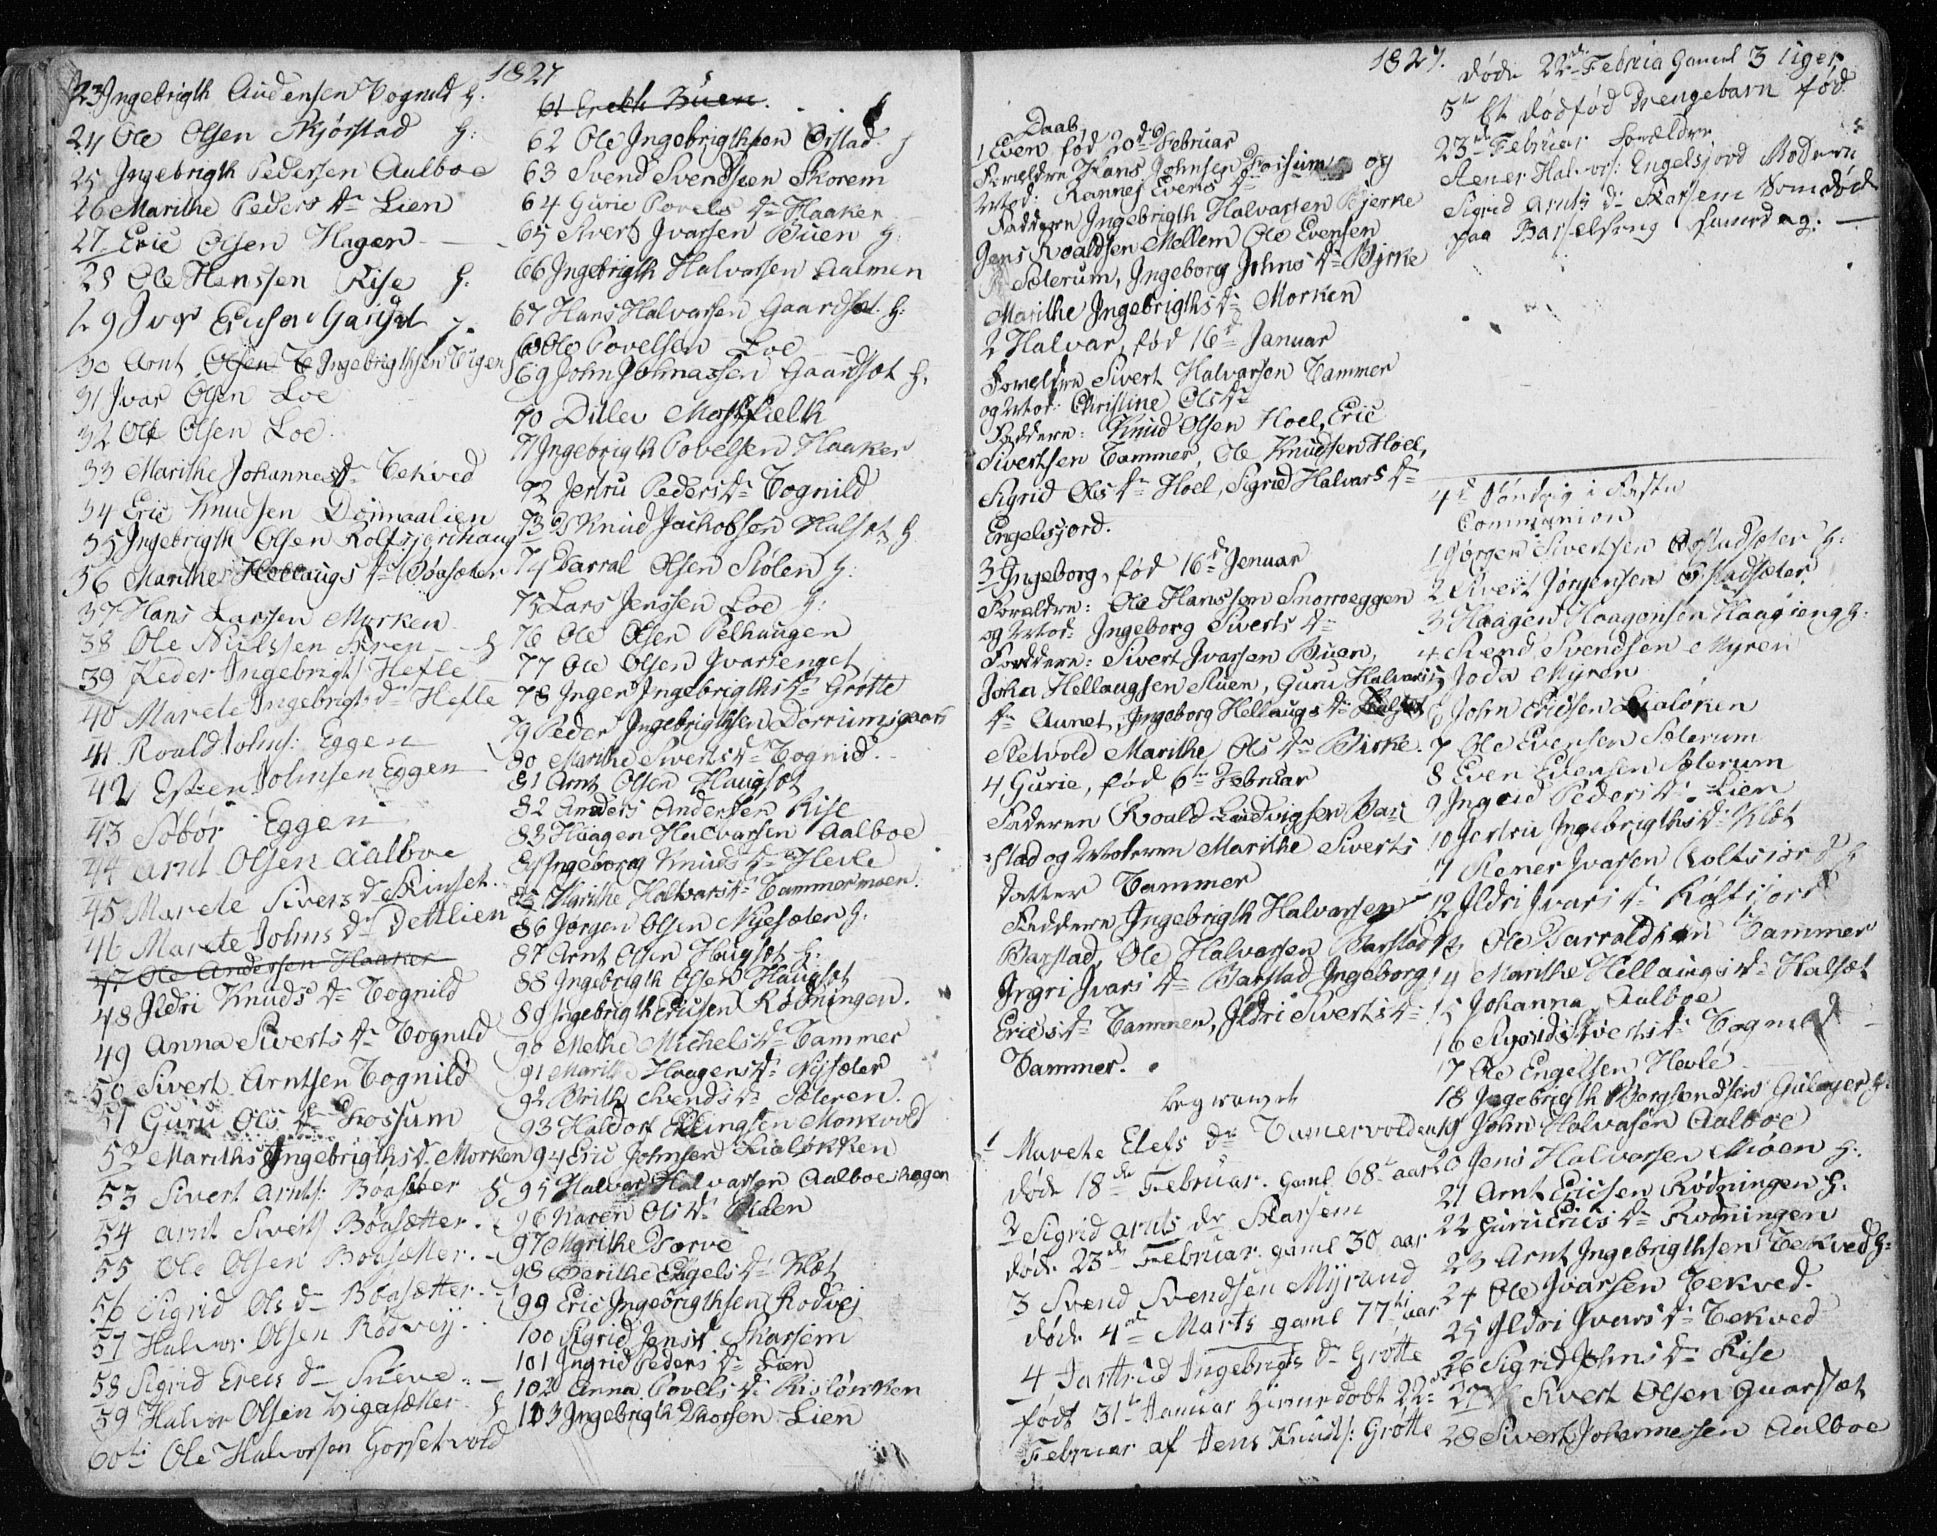 1827
23 Ingebrigth Audensen Tognild h.
24 Ole Olsen Skjørstad h:
25 Ingebrigth Pedersen Aalboe
26 Marithe Peders Dr Lien
27 Eric Olsen Hagen
28 Ole Hanssen Rise h.
29
30 Arnt Olsen Ingebrigthsen Vigen
31 Ivar Olsen Loe
32 Ole Olsen Loe
33 Marithe Johannes Dr Tekved
34 Eric Knudsen Dørmaalien
35 Ingebrigth Olsen
36 Marithe Hellaugs Dr Boasæter
37 Hans Larssen Morken
38 Ole Nielssen h
39 Peder Ingebrigts Hefle
40 Marete Ingebrigts dr Hefle
41 Roald Johns: Eggen
42 Esten Johnsen Eggen
43 Eggen
44 Arnt Olsen Aalboe
45 Marete Sivers dr
46 Marete Johns dr Detlien
47 Ole Andersen Haaker
48 Ildri Knuds Dr Tognild
49 Anna Siverts Dr Tognild
50 Sivert Arntsen Tognild
51 Guru Ols Dr Fossum
52 Marithe Ingebrigths Dr Morken
53 Sivert Arnts: Boasæter
54 Arnt Siverts Boasætter
55 Ole Olsen Boasætter
56 Sigrid Ols d Boasætter
57 Halvor Olsen Rødvej
58 Sigrid Erics d
59 Halvor Olsen Vigasætter
60 Ole Halvorsen Gorsetvold
61 Buen
62 Ole Ingebrigthsen Orstad
63 Svend Svendsen Skorem
64 Gurie Povels Dr Haaker
65 Sivert Ivarsen Buen h
66 Ingebrigth Halvarsen Aalmen
67 Hans Halvarsen Gaardsæt h:
68 Ole Povelsen Loe
69 John Johnassen Gaardsæt h.
70 Ditlev
71 Ingebrigth Povelsen Haaker
72 Jertru Peders Dr Tognild
73 Knud Jachobsen Halset h
74 Barral Olsen Stølen h.
75 Lars Jenssen Loe h:
76 Ole Olsen Pelhaugen
77 Ole Olsen Ivarsenget
78 Inger Ingebrigths Dr Grøtte
79 Peder Ingebrigthsen
80 Marithe Siverts Dr Tognid.
81 Arnt Olsen Haugset
82 Anders Andersen Rise
83 Haagen Halvarsen Aalboe
84 Ingeborg Knuds Dr Hevle
85 Marithe Halvars Dr Tammermoen.
86 Jørgen Olsen Nysæter h.
87 Arnt Olsen Haugset h.
88 Ingebrigth Olsen Haugset
89 Ingebrigth Ericsen Rødningen.
90 Methe Michels Dr Tammer
91 Marith Haagens Dr Nysæter
92 Brithe Svends Dr
93 Haldor Ellingsen Monkvold
94 Eric Johnsen Lialøkken
95 Halvar Halvarsen Aalboeshagen
96 Karen Ols Dr
97 Marithe
98 Berithe Engels Dr Klæt
99 Eric Ingebrigthsen Rodvej
100 Sigrid Jens Dr Skarsem
101 Ingrid Peders Dr Lien
102 Anna Povels Dr Risløkken
103 Ingebrigth Thorsen Lien
1827.
Daab
1 Even, fød 20de Februar
Forældre Hans Johnsen Fossum og
Mod: Rannej Evens Dr
Faddern Ingebrigth Halvarsen Bjerke
Jens Roaldsen Mellem Ole Evensen
Sæterum, Ingeborg Johns Dr Bjerke
Marithe Ingebrigths Dr Morken
2 Halvar, fød 16de Januar
Forældre Sivert Halvarsen Tammer
og Mod: Christine Ols Dr
Faddere: Knud Olsen Hoel, Eric
Sivertsen Tammer, Ole Knudsen Hoel,
Sigrid Ols Dr Hoel, Sigrid Halvars Dr
Engelsjord.
3 Ingeborg, fød 16de Januar
Forældre: Ole Hanssen Snorroeggen
og Mod: Ingeborg Siverts Dr
Faddere: Sivert Ivarsen Buen,
John Hellaugsen Stuen, Guru Halvars
Dr Aunet, Ingeborg Hellaugs Dr
Marithe Ols Dr Birke.
4 Gurie, fød 6te Februar
Faderen Roald Ludvigsen Bar
stad og Moderen Marithe Siverts
datter Tammer
Faddere Ingebrigth Halvarsen
Barstad, Ole Halvarsen Barstad
Ingri Ivars Dr Barstad Ingeborg
Erics Dr Tammer, Ildri Siverts Dr
Tammer.
Begravet
1 Marete Elefs dr Tamervolden
døde 18de Februar. gaml 68 aar
2 Sigrid Arnts dr Skarsem
døde 23de Februar gaml 30 aar
3 Svend Svendsen Myrand
døde 4de Marts gaml 77 aar
4 Ingebrigts dr Grøtte
født 31te Januar hjemedøbt 22de
Februar af Jens Knuds: Grøtte
døde 22de Februa Gamel 3 Uger
5te Et dødfød drengebarn fød
23de Februar Forældre
Stener Halvors: Engelsjord Modern
Sigrid Arnts d. Skarsem Som døde
paa Barselseng samedag.
4de Søndag i Faste
Communion
1 Jørgen Sivertsen h:
2 Sivert Jørgensen
3 Haagen Haagensen Haagaeng h:
4 Svend Svendsen Myren
5 Joda Myren
6 John Ericsen Lialøken
7 Ole Evensen Sæterum
8 Even Evensen Sæterum
9 Ingrid Peders Dr Lien
10 Jertru Ingebrigths Dr Klæt
11 Stener Ivarsen h
12 Ildri Ivars Dr
13 Ole Barraldsen Tammer
14 Marithe Hellaugs Dr Halsæt
15 Johanna Aalboe
16 Sigrid Siverts Dr Tognild
17 Ole Engelsen Hevle
18 Ingebrigth Bergsvendsen h:
19 John Halvasen Aalboe
20 Jens Halvarsen Moen h:
21 Arnt Ericsen Rødningen h.
22 Guru Erics Dr Rødningen
23 Arnt Ingebrigthsen Tekved h:
24 Ole Ivarsen Tekved.
25 Ildri Ivars Dr Tekved
26 Sigrid Johns Dr Rise
27 Sivert Olsen Guarssæt
28 Sivert Johannessen Aalboe